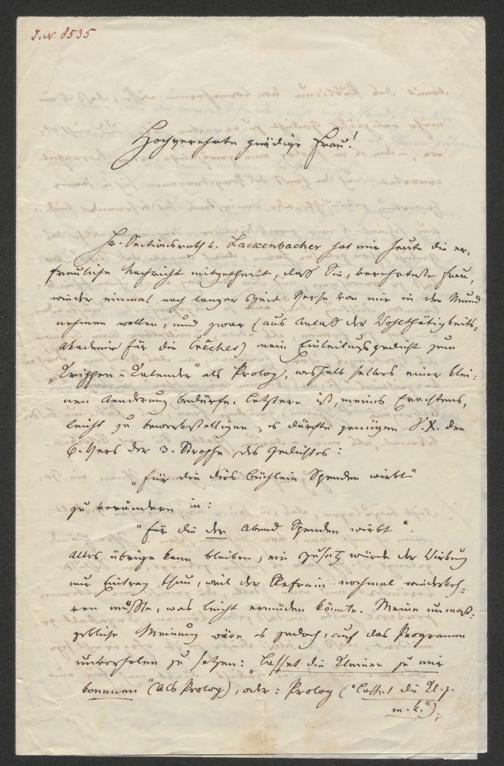 J. N. 8535
Hochverehrte gnädige Frau!
Hr. Sectionsrath v. Lackenbacher hat mir heute die er-
freuliche Nachricht mitgetheilt, daß Sie, verehrteste Frau,
wieder einmal nach langer Zeit Verse von mir in den Mund
nehmen wollen, und zwar (aus Anlaß der Wohlthätigkeits-
akademie für die Crèches) mein Einleitungsgedicht zum
„Krippen-Kalender" als Prolog, weshalb selbes einer klei-
nen Aenderung bedürfe. Letztere ist, meines Erachtens,
leicht zu bewerkstelligen; es dürfte genügen den
6. Vers der 3. Strophe des Gedichtes:
„Für die dies Büchlein Spenden wirbt"
zu verändern in:
„Für die der Abend Spenden wirbt".
Alles übrige kann bleiben; ein Zusatz würde der Wirkung
nur Eintrag thun, weil der Refrain nochmal wiederkeh-
ren müßte, was leicht ermüden könnte. Meine unmaß-
gebliche Meinung wäre es jedoch, auf das Programm
unterholen zu setzen: „Lasset die Kleinen zu mir
kommen" (als Prolog), oder: Prolog („Lasset die Kl. z.
m. k."),